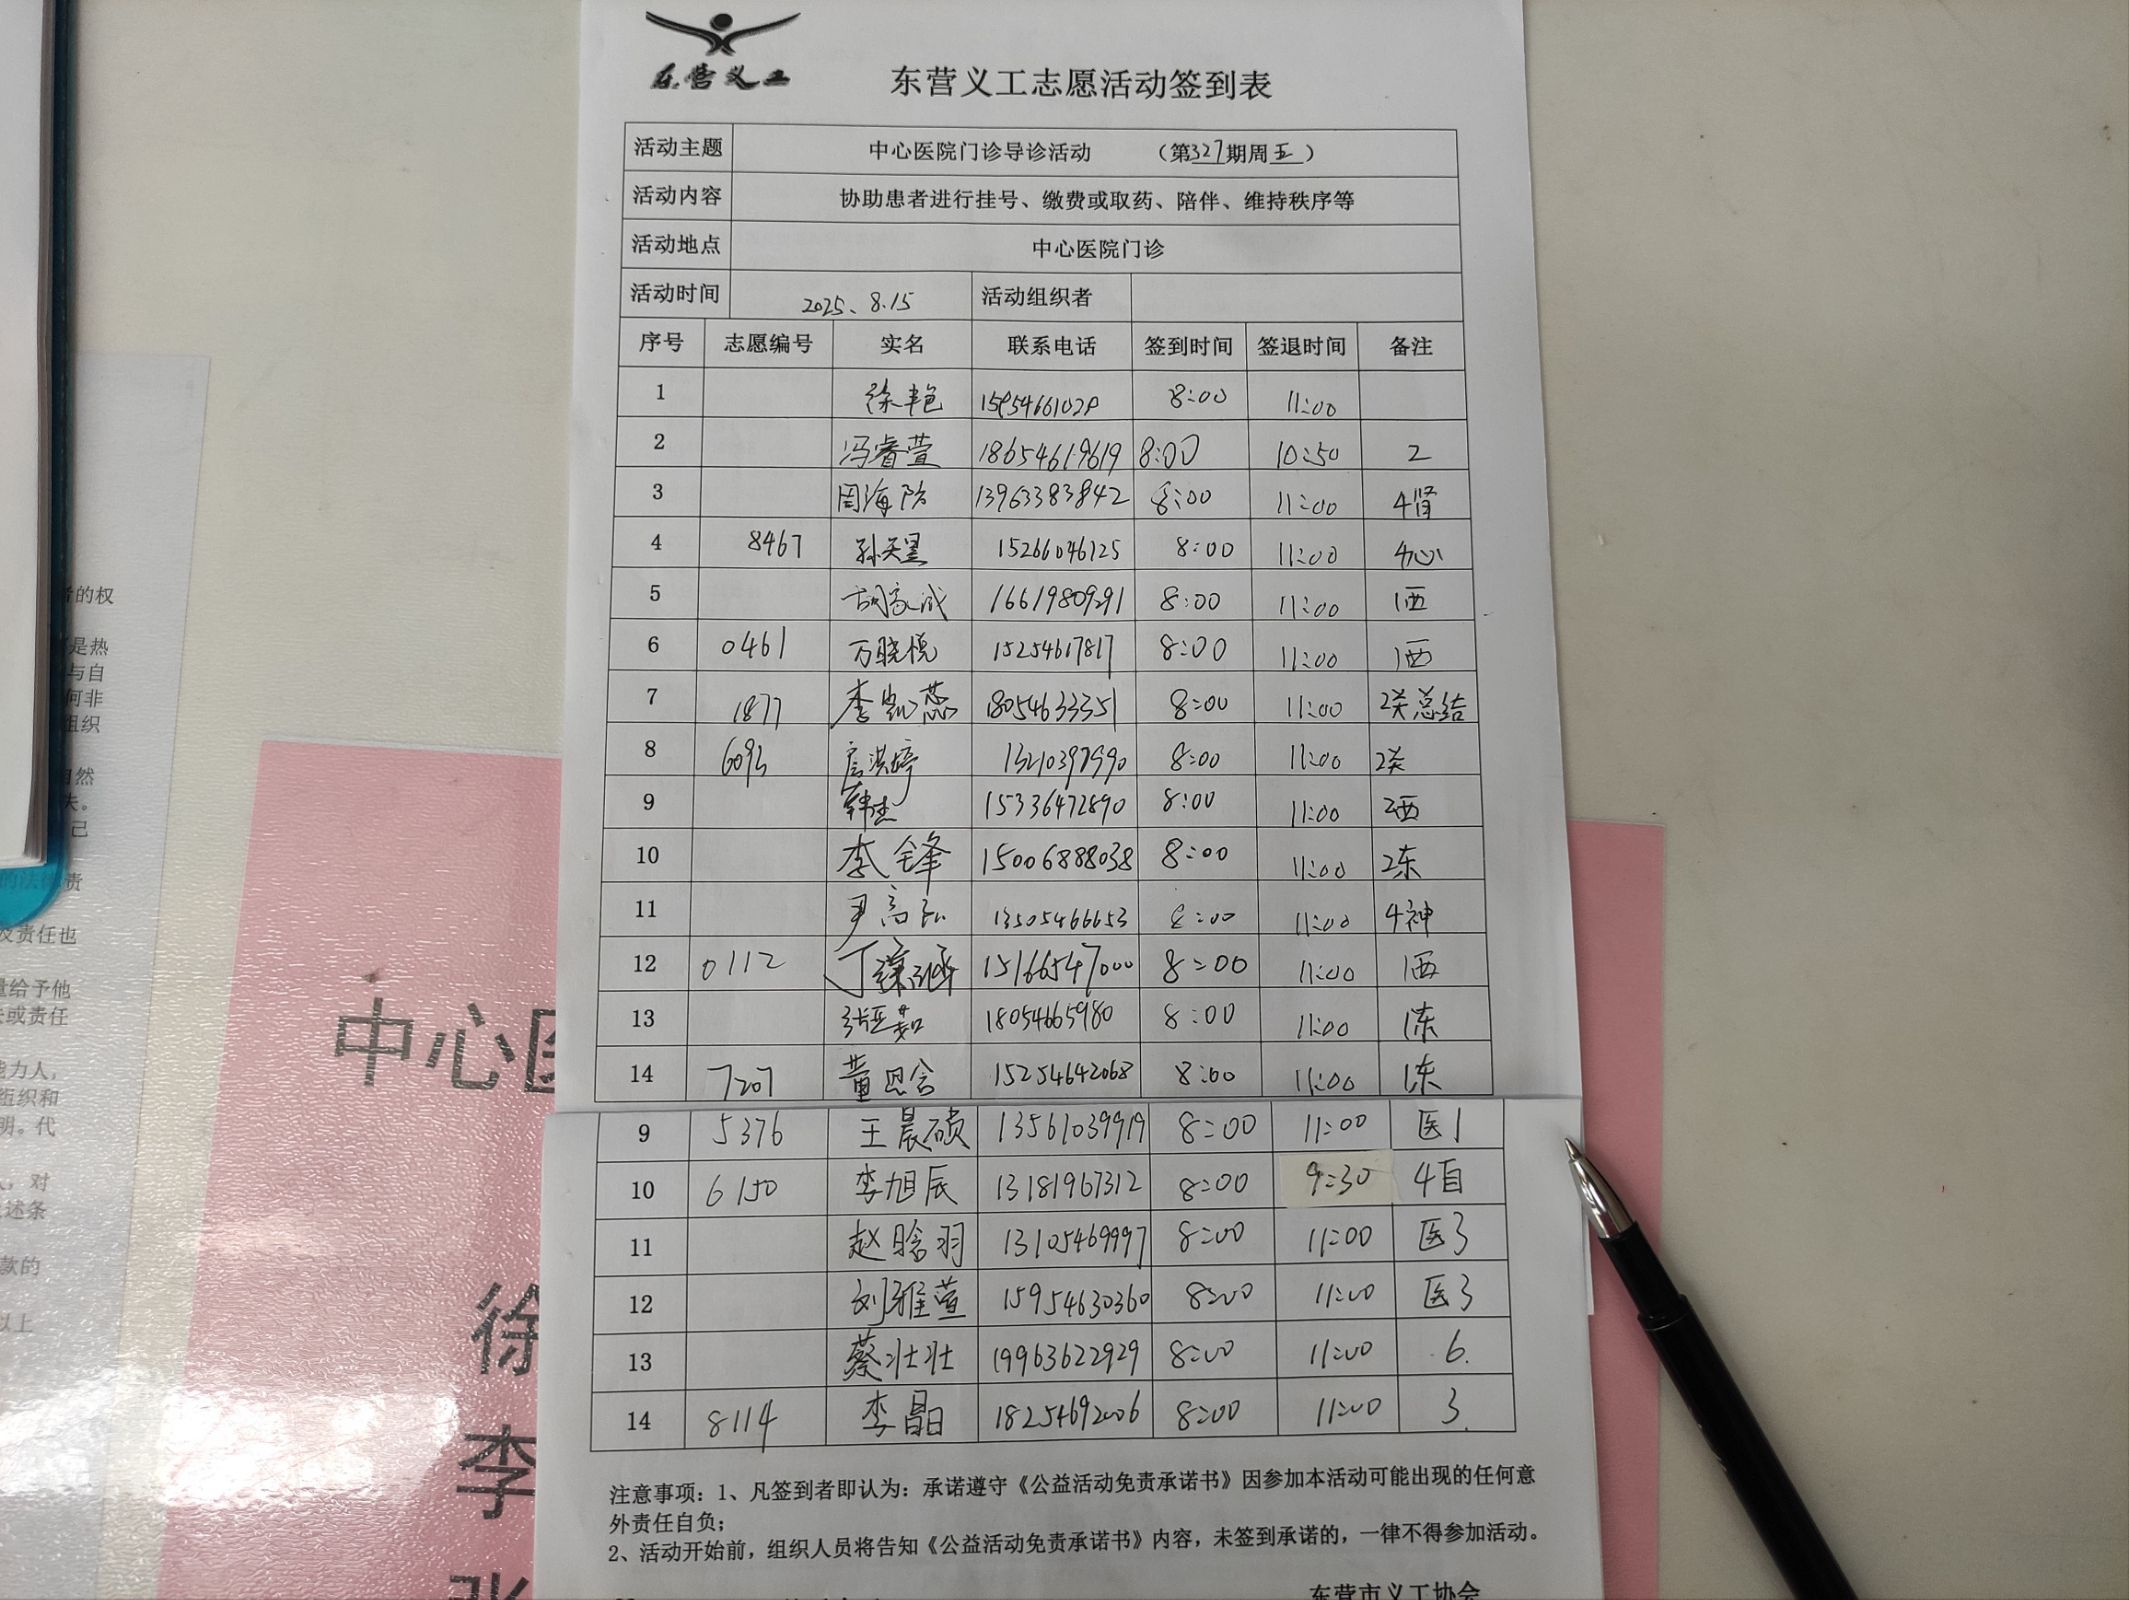 东营义工
东营义工志愿活动签到表
活动主题 中心医院门诊导诊活动 （第327期周五）
活动内容 协助患者进行挂号、缴费或取药、陪伴、维持秩序等
活动地点 中心医院门诊
活动时间 2025、8.15 活动组织者
序号 志愿编号 实名 联系电话 签到时间 签退时间 备注
1 徐丰艳 8:00 11:00
2 冯睿萱 18654619619 8:00 10:50 2
3 周海防 13963383842 8:00 11:00 4肾
4 8467 孙天昱 15266046125 8:00 11:00 4心
5 胡家诚 16619809291 8:00 11:00 1西
6 0461 万晓悦 15254617817 8:00 11:00 1西
7 1877 李凯蕊 18054633351 8:00 11:00 2关总结
8 8:00 11:00 2关
9 韩杰 15336472890 8:00 11:00 2西
10 李锋 15006888038 8:00 11:00 2东
11 尹高弘 13505466653 8:00 11:00 4神
12 0112 丁 15166547000 8:00 11:00 1西
13 18054665980 8:00 11:00 1东
14 7207 董思含 15254642068 8:00 11:00 1东
9 5376 王晨硕 13561039919 8:00 11:00 医1
10 6150 李旭辰 13181967312 8:00 9:30 4自
11 赵晗羽 13105469997 8:00 11:00 医3
12 刘雅萱 15954630360 8:00 11:00 医3
13 蔡壮壮 19963622929 8:00 11:00 6.
14 8114 李晶 18254692006 8:00 11:00 3.
注意事项：1、凡签到者即认为：承诺遵守《公益活动免责承诺书》因参加本活动可能出现的任何意
外责任自负；
2、活动开始前，组织人员将告知《公益活动免责承诺书》内容，未签到承诺的，一律不得参加活动。
东营市义工协会
中心医
徐
李
张
者的权
是热
与自
何非
组织
自然
夫。
己
的法律责
及责任也
量给予他
去或责任
能力人，
组织和
明。代
对
述条
款的
以上